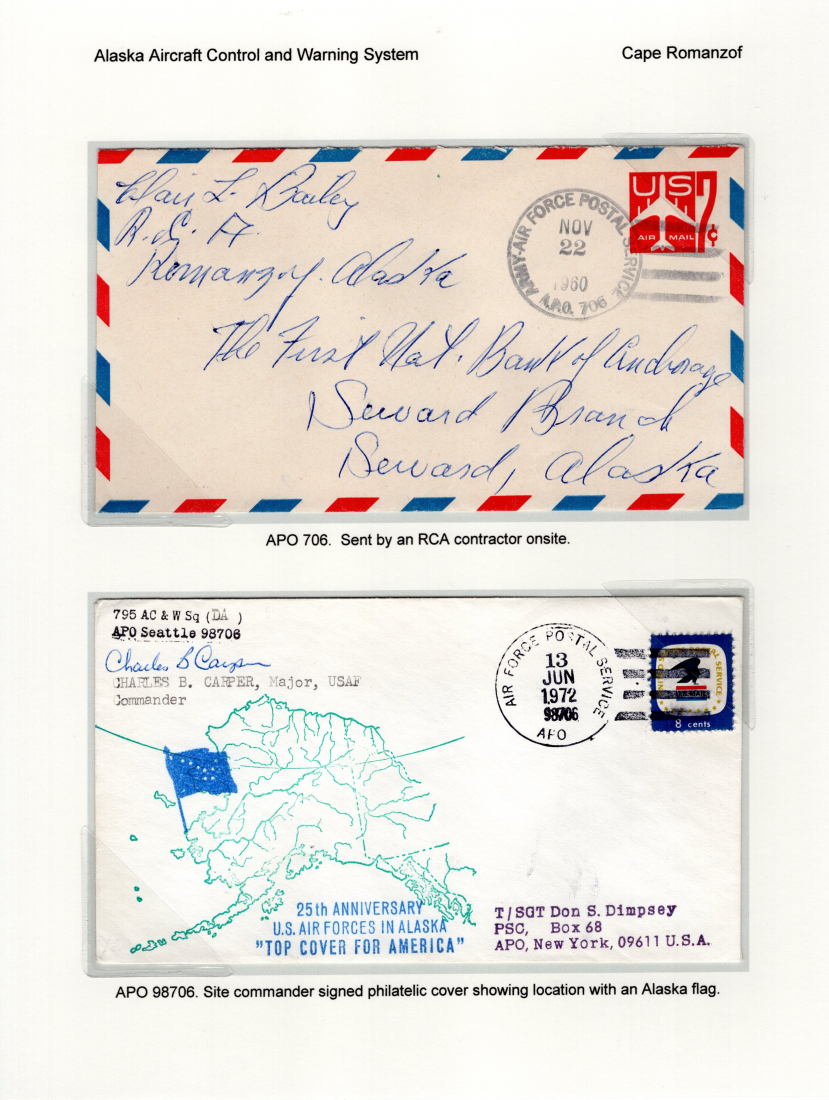 Alaska Aircraft Control and Warning System
Cape Romanzof
Clair L. Bailey
R.C.A.
Romanzof, Alaska
ARMY-AIR FORCE POSTAL SERVICE
NOV
22
1960
A.P.O. 706
US 7¢
AIR MAIL
The First Nat. Bank of Anchorage
Seward Branch
Seward, Alaska
APO 706. Sent by an RCA contractor onsite.
795 AC & W Sq (DA )
APO Seattle 98706
Charles B Carper
CHARLES B. CARPER, Major, USAF
Commander
AIR FORCE POSTAL SERVICE
13
JUN
1972
98706
APO
POSTAL SERVICE
8 cents
25th ANNIVERSARY
U.S. AIR FORCES IN ALASKA
"TOP COVER FOR AMERICA"
T/SGT Don S. Dimpsey
PSC, Box 68
APO, New York, 09611 U.S.A.
APO 98706. Site commander signed philatelic cover showing location with an Alaska flag.